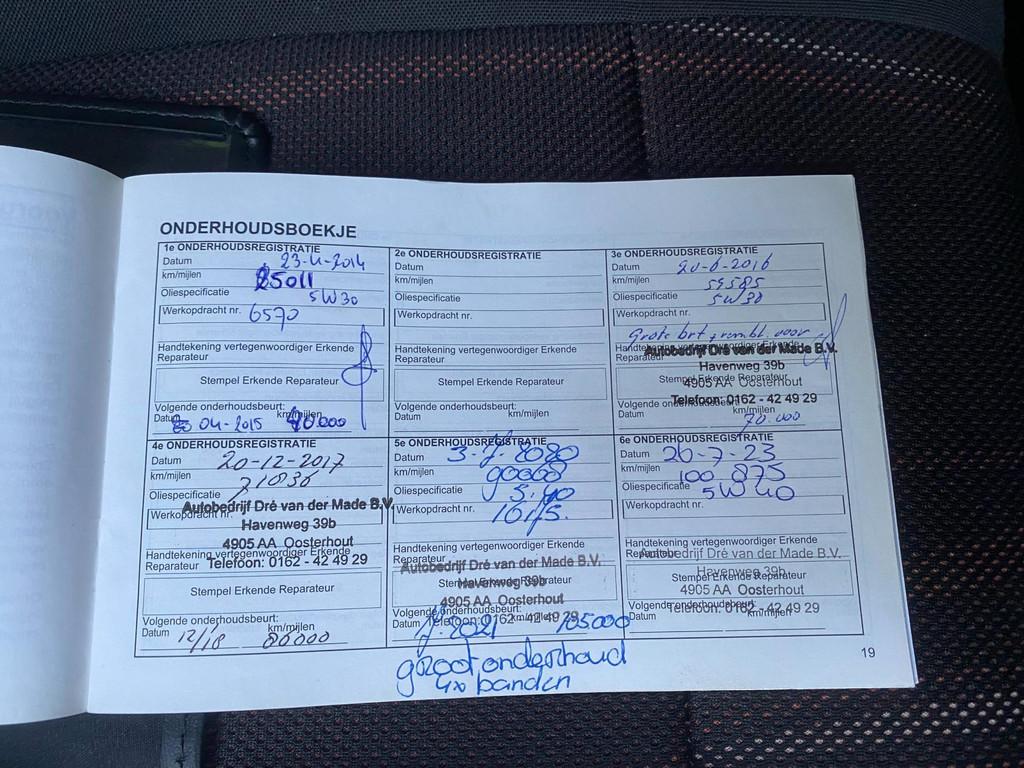 ONDERHOUDSBOEKJE
1e ONDERHOUDSREGISTRATIE
Datum 23-4-2014
km/mijlen 25011
Oliespecificatie 5W30
Werkopdracht nr. 6570
Handtekening vertegenwoordiger Erkende
Reparateur
Stempel Erkende Reparateur
Volgende onderhoudsbeurt:
Datum km/mijlen
04-2015 40.000
2e ONDERHOUDSREGISTRATIE
Datum
km/mijlen
Oliespecificatie
Werkopdracht nr.
Handtekening vertegenwoordiger Erkende
Reparateur
Stempel Erkende Reparateur
Volgende onderhoudsbeurt:
Datum km/mijlen
3e ONDERHOUDSREGISTRATIE
Datum 20-6-2016
km/mijlen 55585
Oliespecificatie 5W30
Werkopdracht nr.
Grote brt, rembl. voor
Handtekening vertegenwoordiger Erkende
Reparateur
Autobedrijf Dré van der Made B.V.
Havenweg 39b
Stempel Erkende Reparateur
4905 AA Oosterhout
Telefoon: 0162 - 42 49 29
Volgende onderhoudsbeurt:
Datum km/mijlen
70.000
4e ONDERHOUDSREGISTRATIE
Datum 20-12-2017
km/mijlen 71036
Oliespecificatie
Autobedrijf Dré van der Made B.V.
Werkopdracht nr.
Havenweg 39b
4905 AA Oosterhout
Handtekening vertegenwoordiger Erkende
Reparateur Telefoon: 0162 - 42 49 29
Stempel Erkende Reparateur
Volgende onderhoudsbeurt:
Datum km/mijlen
12/18 86000
5e ONDERHOUDSREGISTRATIE
Datum 3-7-2020
km/mijlen 90068
Oliespecificatie 5.40
Werkopdracht nr. 10175.
Handtekening vertegenwoordiger Erkende
Reparateur
Autobedrijf Dré van der Made B.V.
Stempel Erkende Reparateur
Havenweg 39b
4905 AA Oosterhout
Volgende onderhoudsbeurt:
Telefoon: 0162 - 42 49 29
Datum km/mijlen
7-2021 105000
groot onderhoud
4x banden
6e ONDERHOUDSREGISTRATIE
Datum 26-7-23
km/mijlen 100 875
Oliespecificatie 5W40
Werkopdracht nr.
Handtekening vertegenwoordiger Erkende
Reparateur
Autobedrijf Dré van der Made B.V.
Havenweg 39b
Stempel Erkende Reparateur
4905 AA Oosterhout
Volgende onderhoudsbeurt:
Telefoon: 0162 - 42 49 29
Datum km/mijlen
19